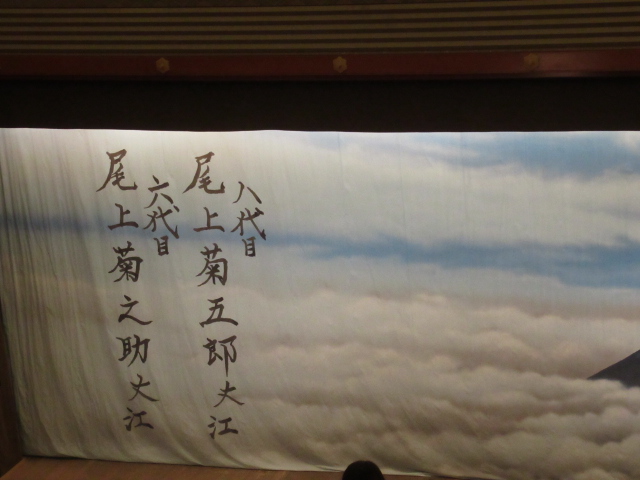 八代目
尾上菊五郎丈江
六代目
尾上菊之助丈江